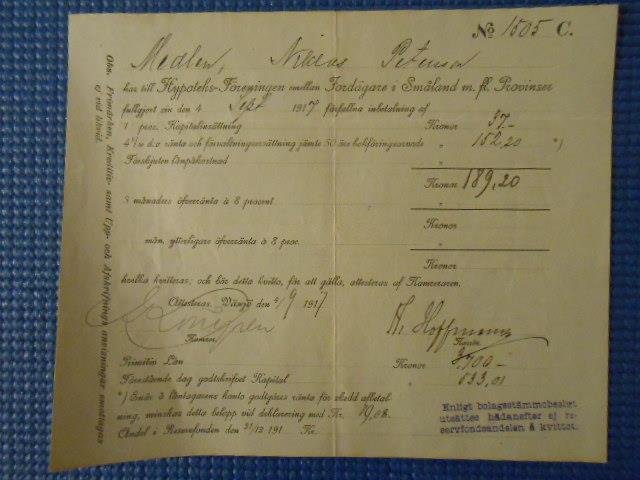 № 1505 C.
Medlem, Niklas Peterson
har till Hypoteks-Föreningen emellan Jordägare i Småland m. fl. Provinser
fullgjort sin den 4 Sept 1917 förfallna inbetalning af
1 proc. Kapitalinsättning Kronor 37,-
ränta och förvaltningsersättning jämte 50 öre bokföringsarvode „ 152,20 *)
Förskjuten lånekostnad „
Kronor 189,20
3 månaders öfverränta à 8 procent „
Kronor
mån. ytterligare öfverränta à 8 proc. „
Kronor
hvilka kvitteras; och bör detta kvitto, för att gälla, attesteras af Kamreraren.
Attesteras. Växjö den 5/9 1917
Hoffmann
Kamrer. Kassör.
Primitiv Lån Kronor 3,700-
Förestående dag godtskrifvet Kapital „ 633,01
*) Emår å låntagarens konto godtgöres ränta för skedd afbetal-
ning, minskar detta belopp vid deklarering med Kr. 19,08.
Andel i Reservfonden den 31/12 191 Kr.
Enligt bolagsstämmobeslut
utsättes hädanefter ej re-
servfondsandelen å kvittot.
Obs. Frimärken, Kreditiv- samt Upp- och Afskrifnings anvisningar emottagas
ej vid likvid.